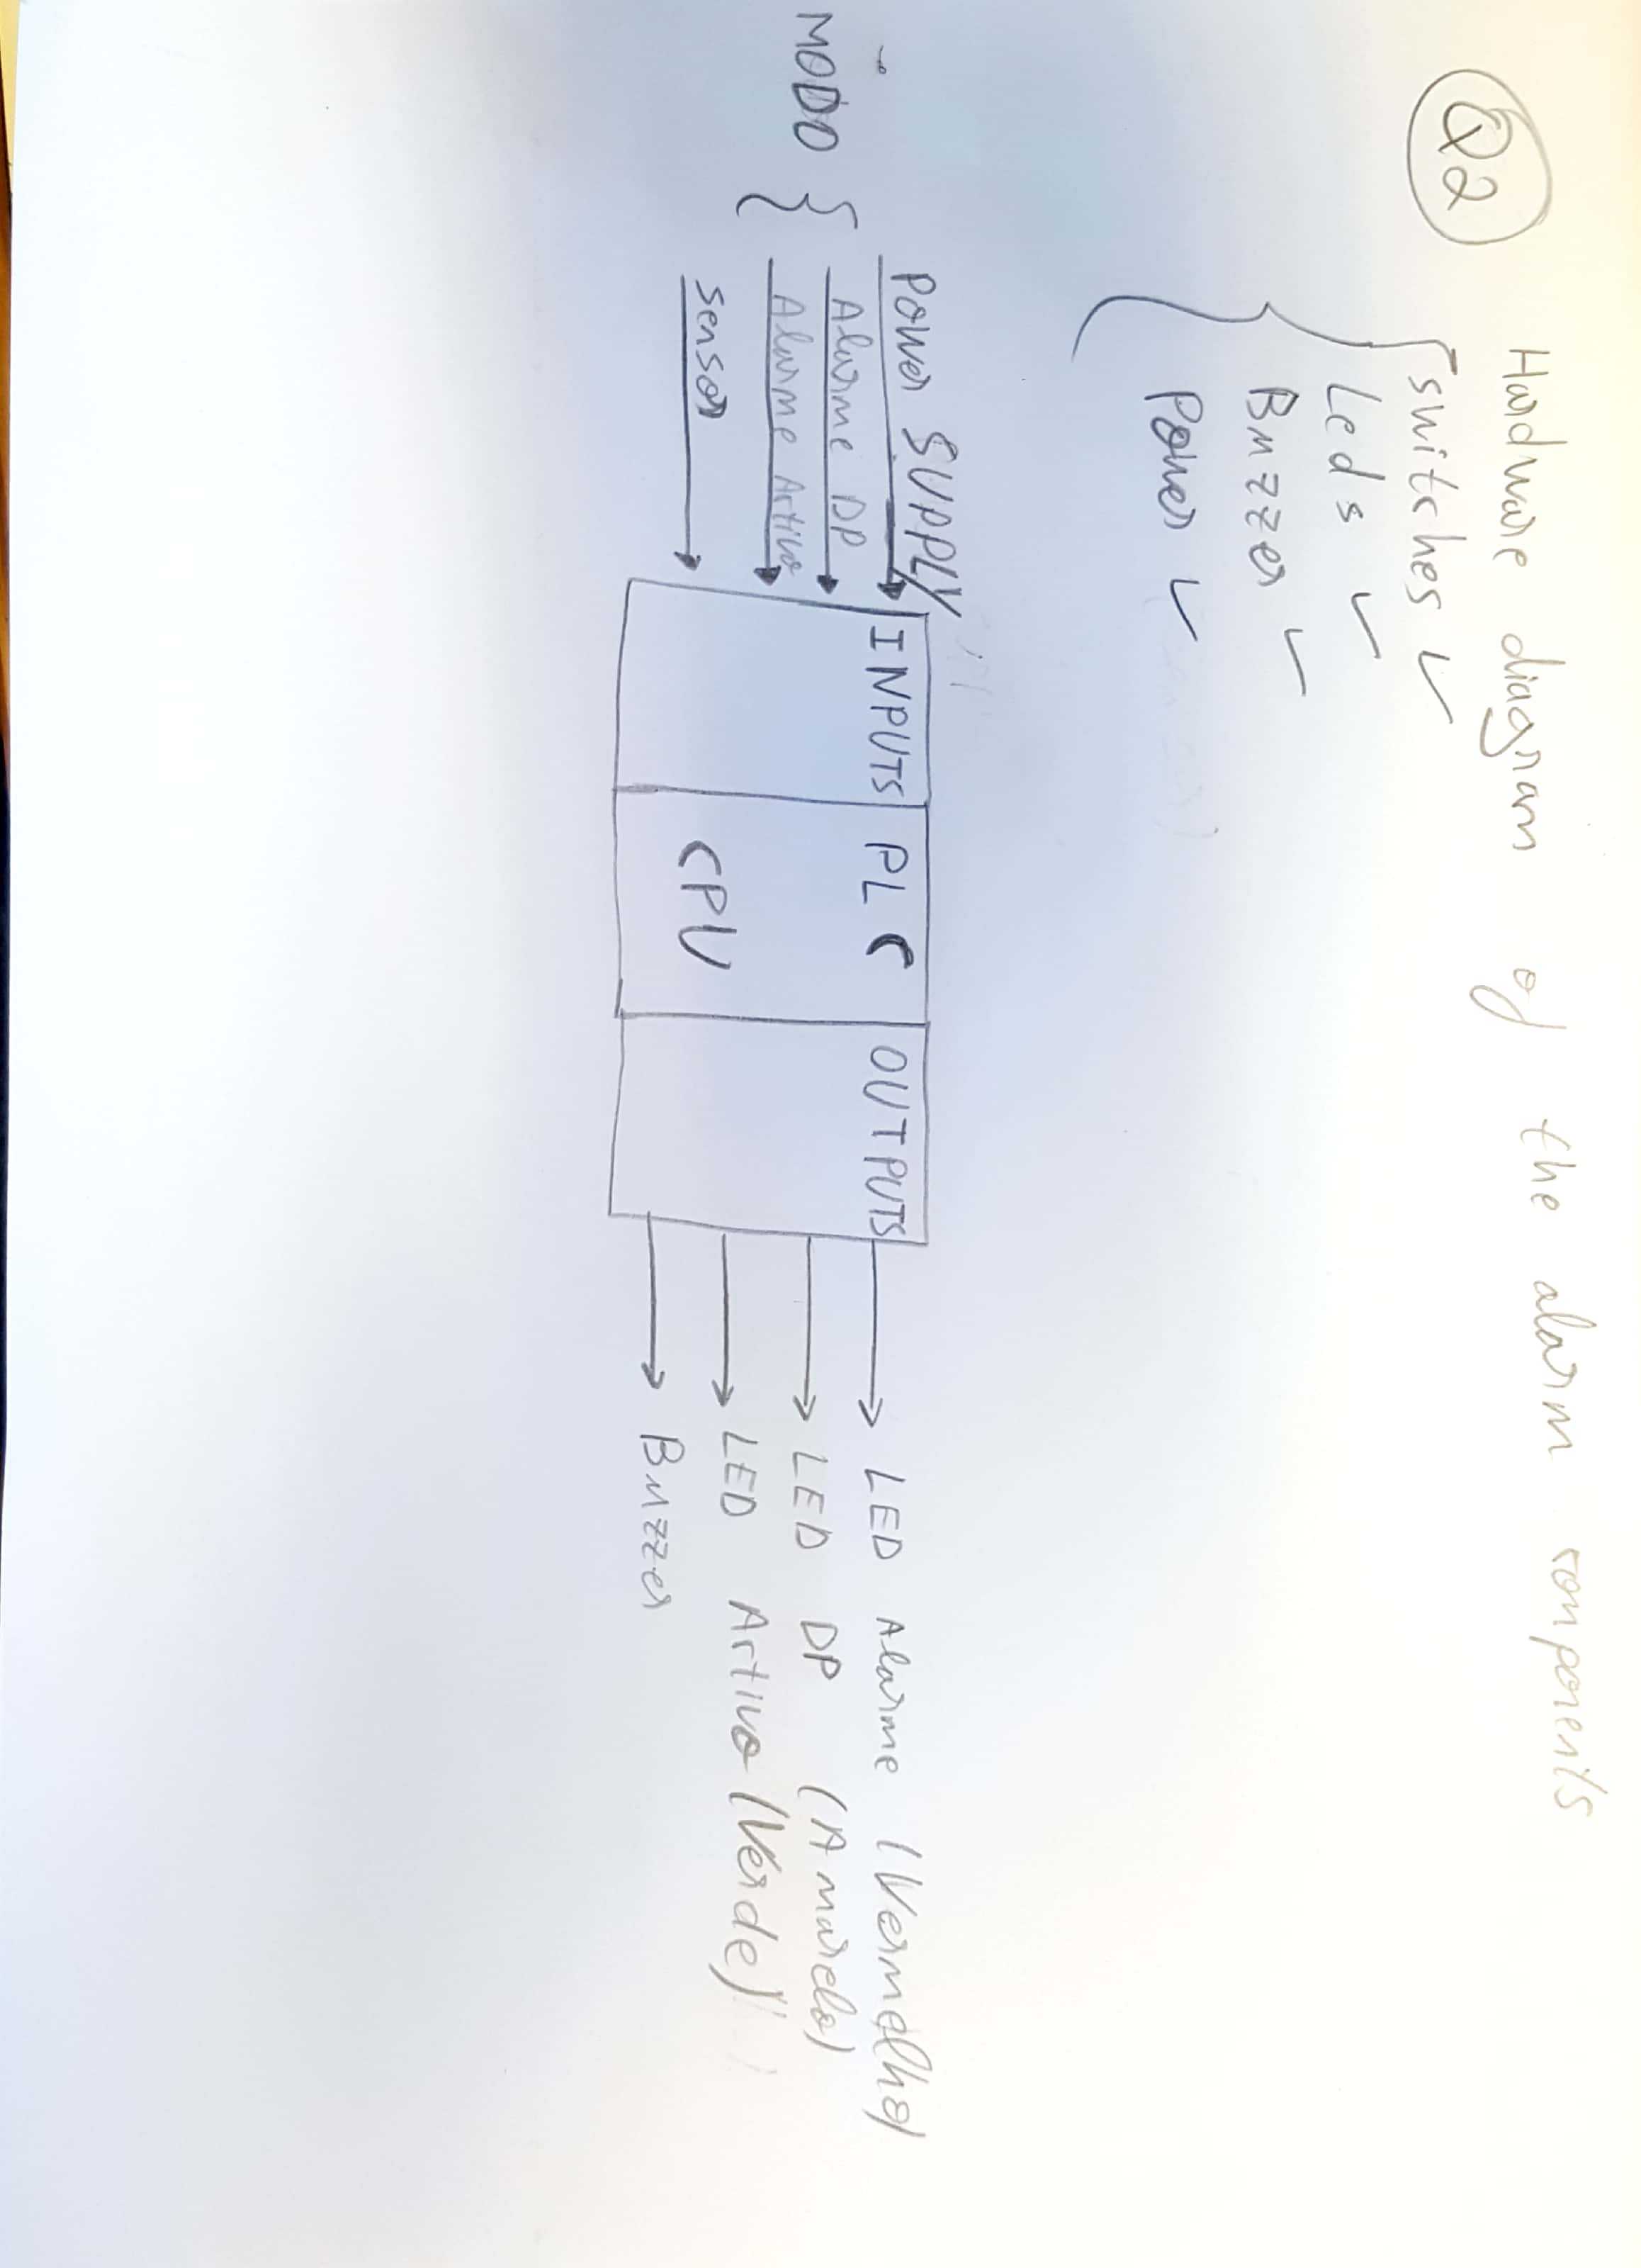 Q2
Hardware diagram of the alarm components
switches ✓
Leds ✓
Buzzer ✓
Power ✓
MODO
Power SUPPLY
Alarme DP
Alarme Activo
sensor
INPUTS
PLC
CPU
OUTPUTS
LED Alarme (Vermelho)
LED DP (Amarelo)
LED Activo (Verde)
Buzzer